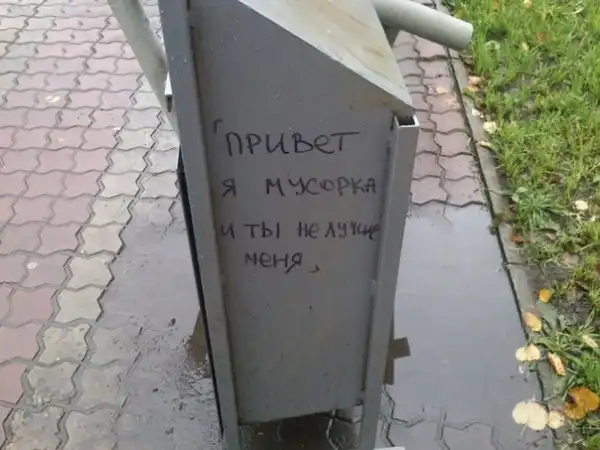 "ПРИВЕТ
Я МУСОРКА
И ТЫ НЕ ЛУЧШЕ
МЕНЯ"